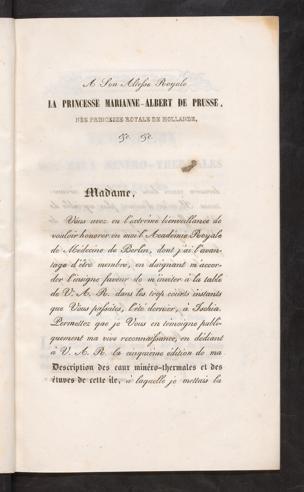 A Son Altesse Royale
LA PRINCESSE MARIANNE-ALBERT DE PRUSSE,
NÉE PRINCESSE ROYALE DE HOLLANDE,
&c. &c.
Madame,
Vous avez eu l'extrême bienveillance de
vouloir honorer en moi l'Académie Royale
de Médecine de Berlin, dont j'ai l'avan-
tage d'être membre, en daignant m'accor-
der l'insigne faveur de m'inviter à la table
de V. A. R. dans les trop courts instants
que Vous passâtes, l'été dernier, à Ischia.
Permettez que je Vous en témoigne publi-
quement ma vive reconnaissance, en dédiant
à V. A. R. la cinquième édition de ma
Description des eaux minéro-thermales et des
étuves de cette île, à laquelle je mettais la